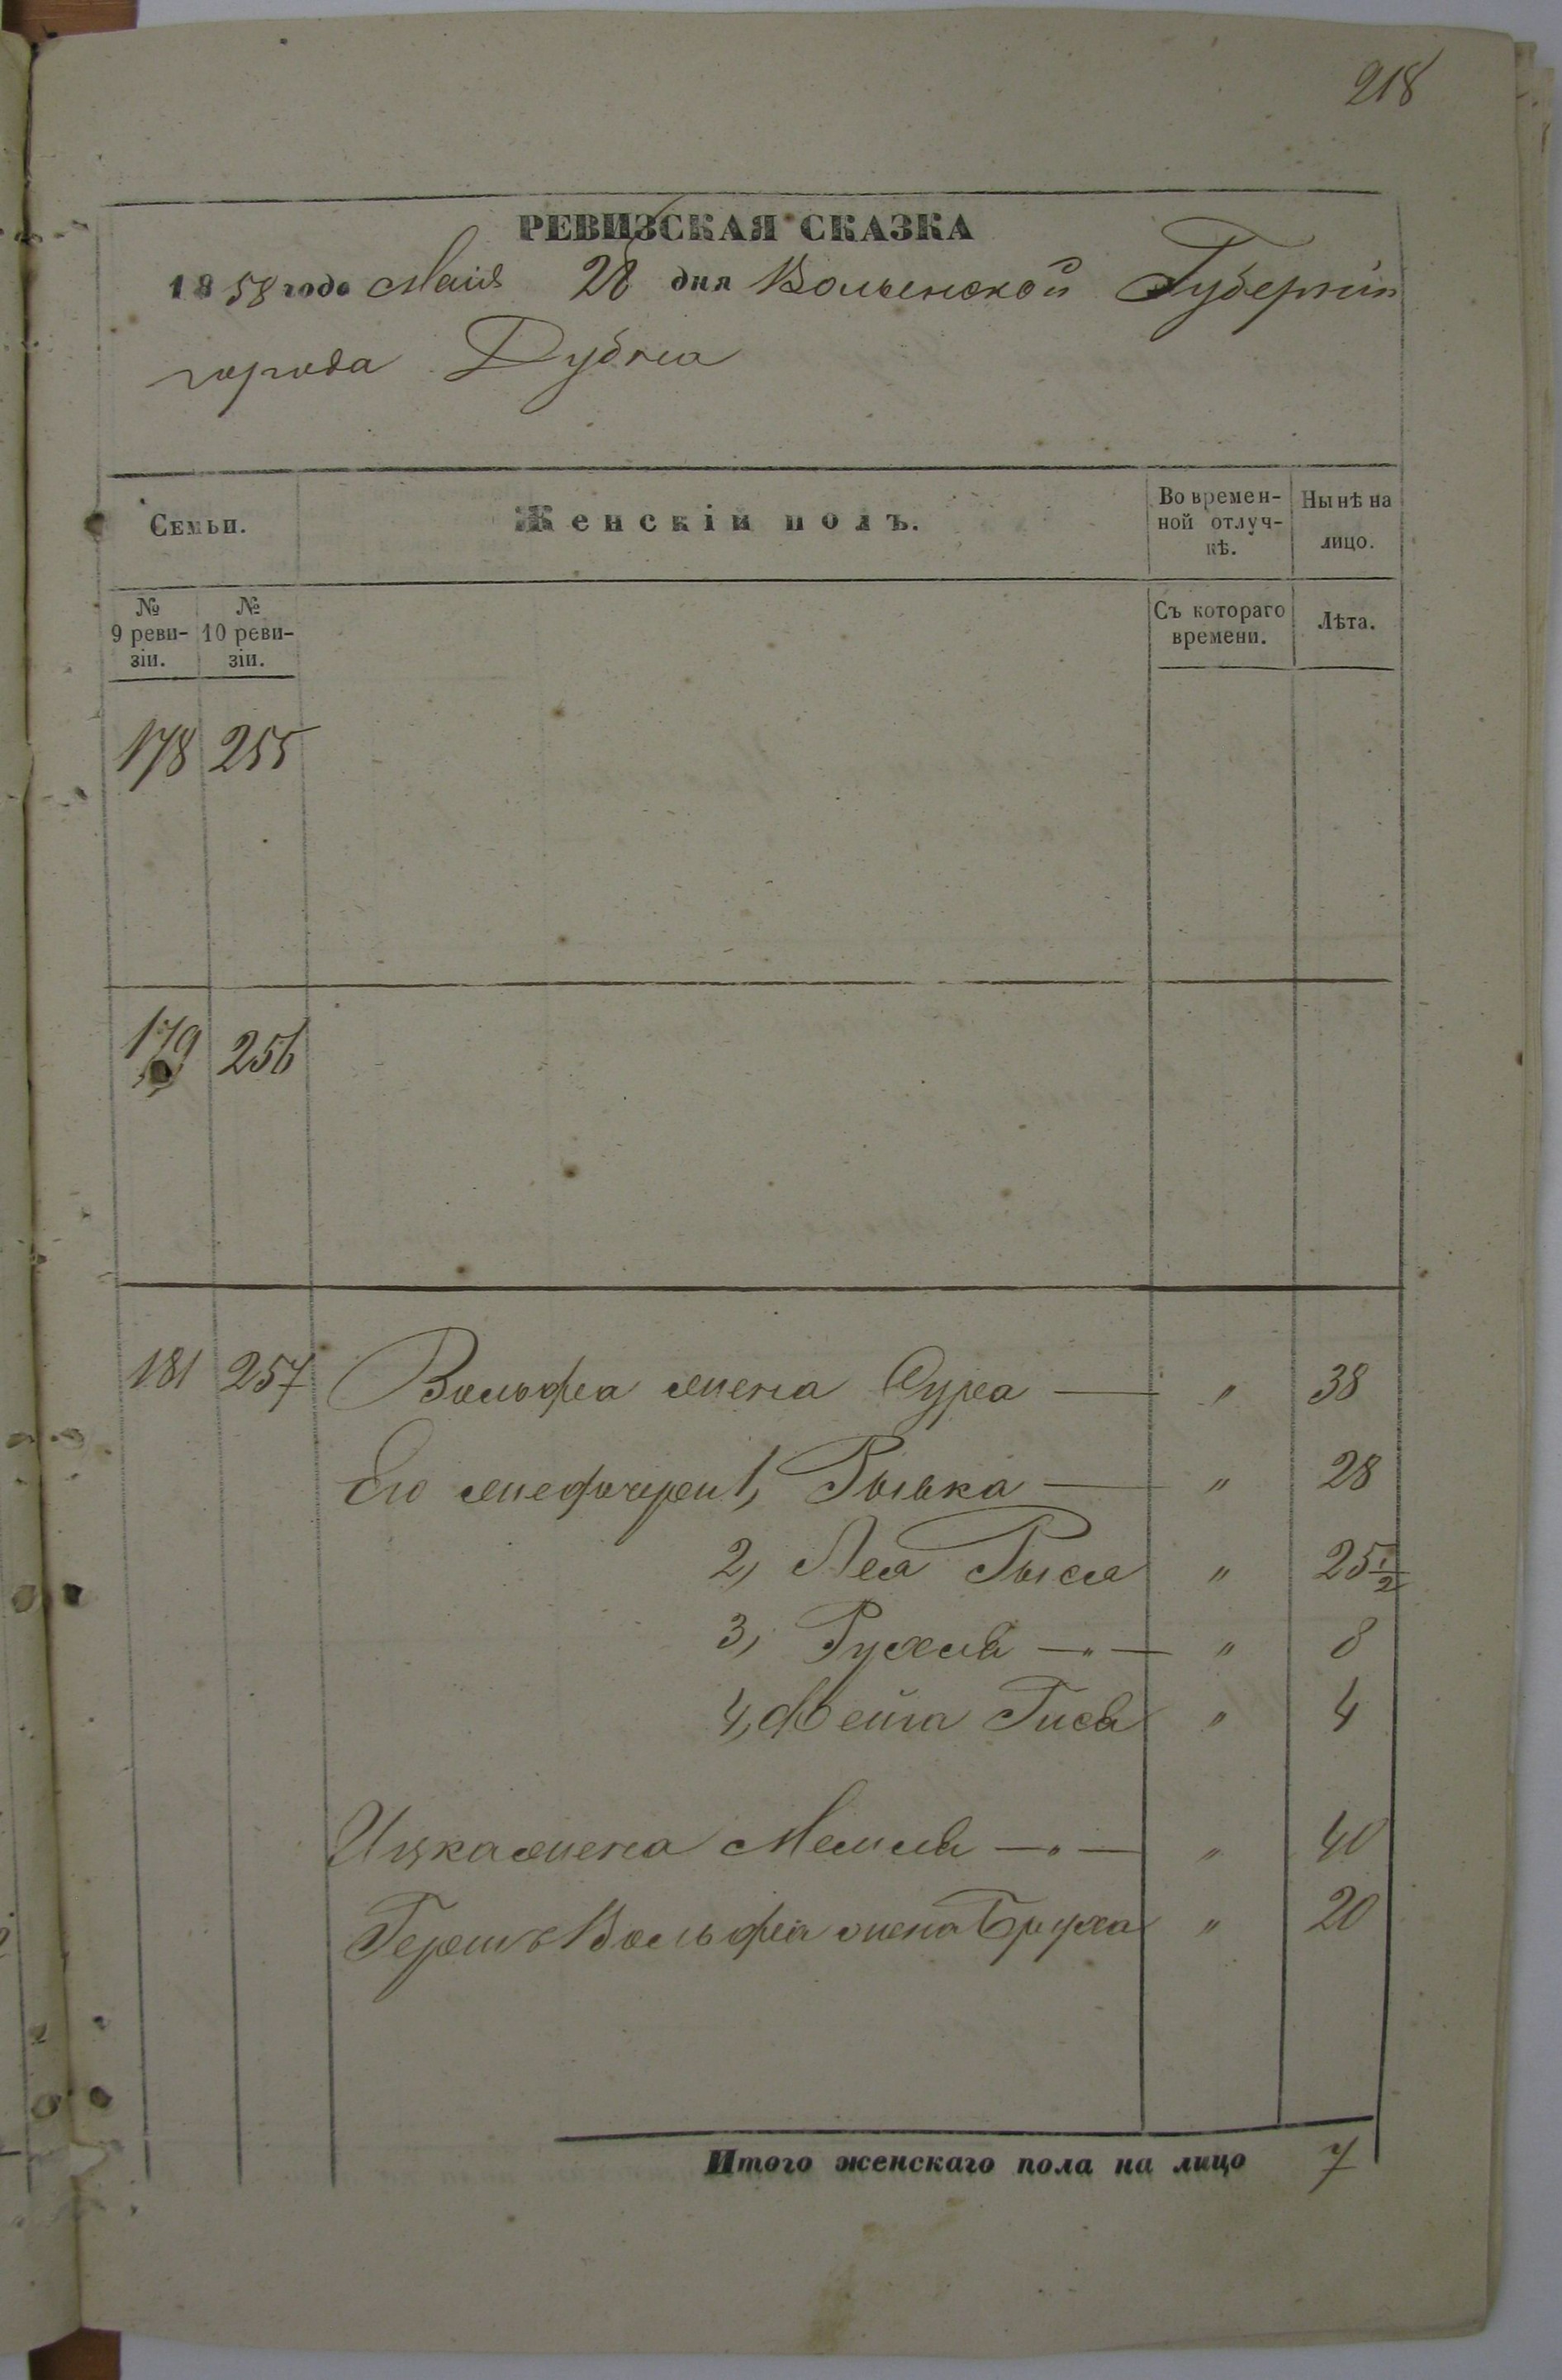 218
РЕВИЗСКАЯ СКАЗКА
1858 года Маія 28 дня Волынской Губерніи
города Дубна
Семьи.
Женскій полъ.
Во времен-
ной отлуч-
кѣ.
Нынѣ на
лицо.
№
9 реви-
зіи.
№
10 реви-
зіи.
Съ котораго
времени.
Лѣта.
178 255
179 256
181 257 Вольфа жена Сура — " 38
Его же дочери 1, Рывка — " 28
2, Лея Рыся " 25 1/2
3, Рухля —"— " 8
4, Фейга Гися " 4
Ицка жена —"— " 40
Гершъ Вольфа жена Бруха " 20
Итого женскаго пола на лицо 7